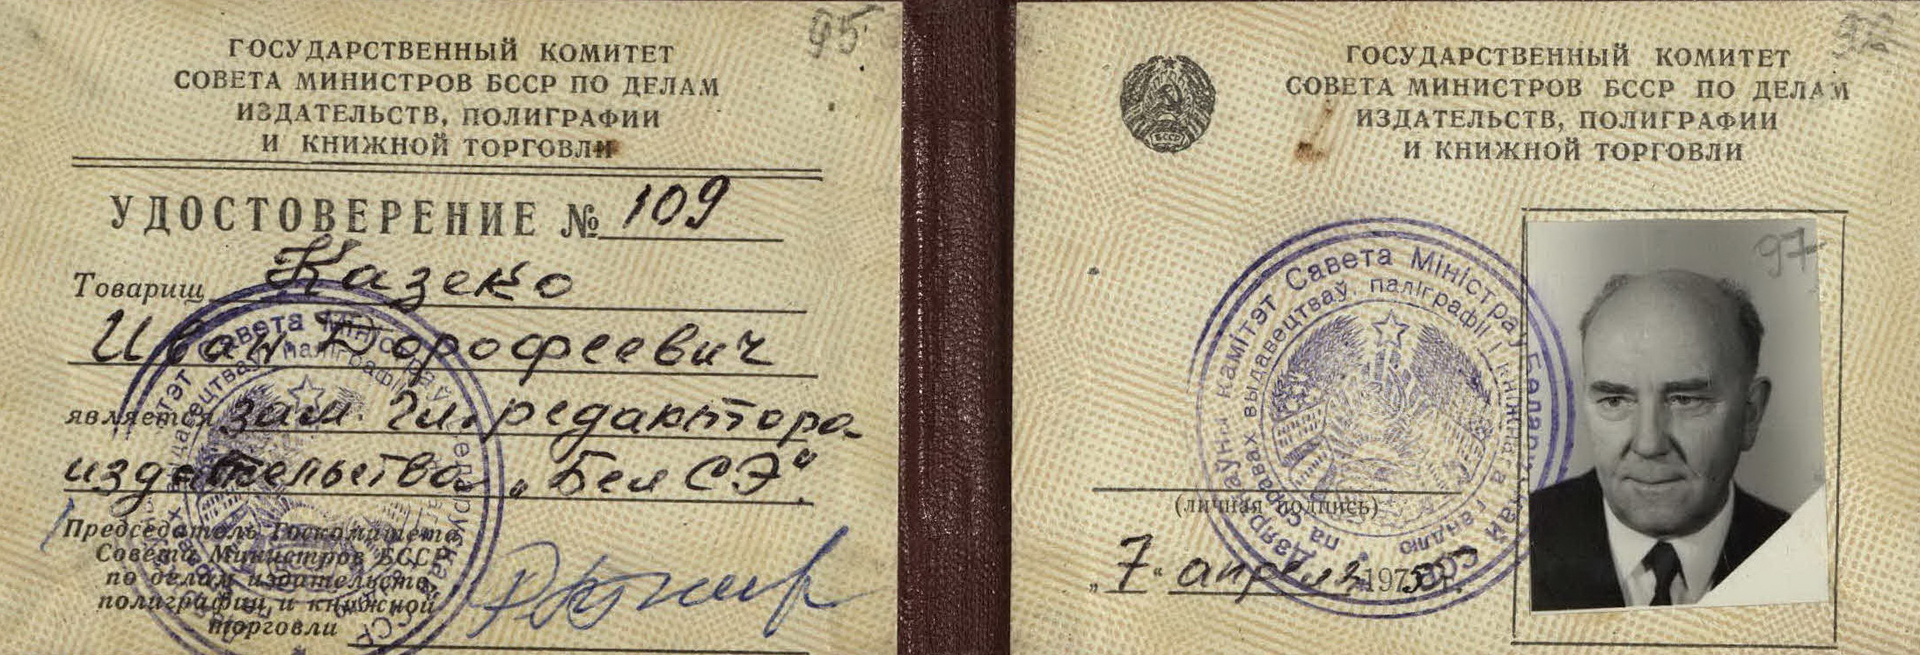 95
ГОСУДАРСТВЕННЫЙ КОМИТЕТ
СОВЕТА МИНИСТРОВ БССР ПО ДЕЛАМ
ИЗДАТЕЛЬСТВ, ПОЛИГРАФИИ
И КНИЖНОЙ ТОРГОВЛИ
УДОСТОВЕРЕНИЕ № 109
Товарищ Казеко
Иван Дорофеевич
является зам. гл. редактора
издательства „БелСЭ“.
Председатель Госкомитета
Совета Министров БССР
по делам издательств,
полиграфии и книжной
торговли
ГОСУДАРСТВЕННЫЙ КОМИТЕТ
СОВЕТА МИНИСТРОВ БССР ПО ДЕЛАМ
ИЗДАТЕЛЬСТВ, ПОЛИГРАФИИ
И КНИЖНОЙ ТОРГОВЛИ
БССР
97
Дзяржаўны камітэт Савета Міністраў Беларускай ССР
па справах выдавецтваў, паліграфіі і кніжнага гандлю
(личная подпись)
„7“ апреля